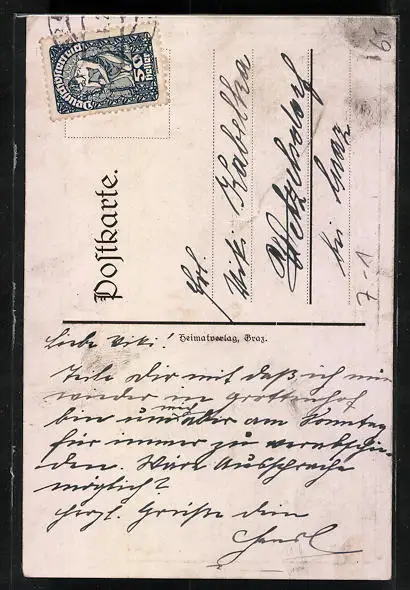 Deutschösterreich
50
Heller
Postkarte.
Frl.
Viki Kabelka
bei Graz
7-1
65
Heimatverlag, Graz.
Liebe Viki!
Teile Dir mit daß ich nur
wieder in Grottenhof
bin um aber am Sonntag
für immer zu verabschie-
den. Wäre Aussprache
möglich?
Herzl. Grüße Dein